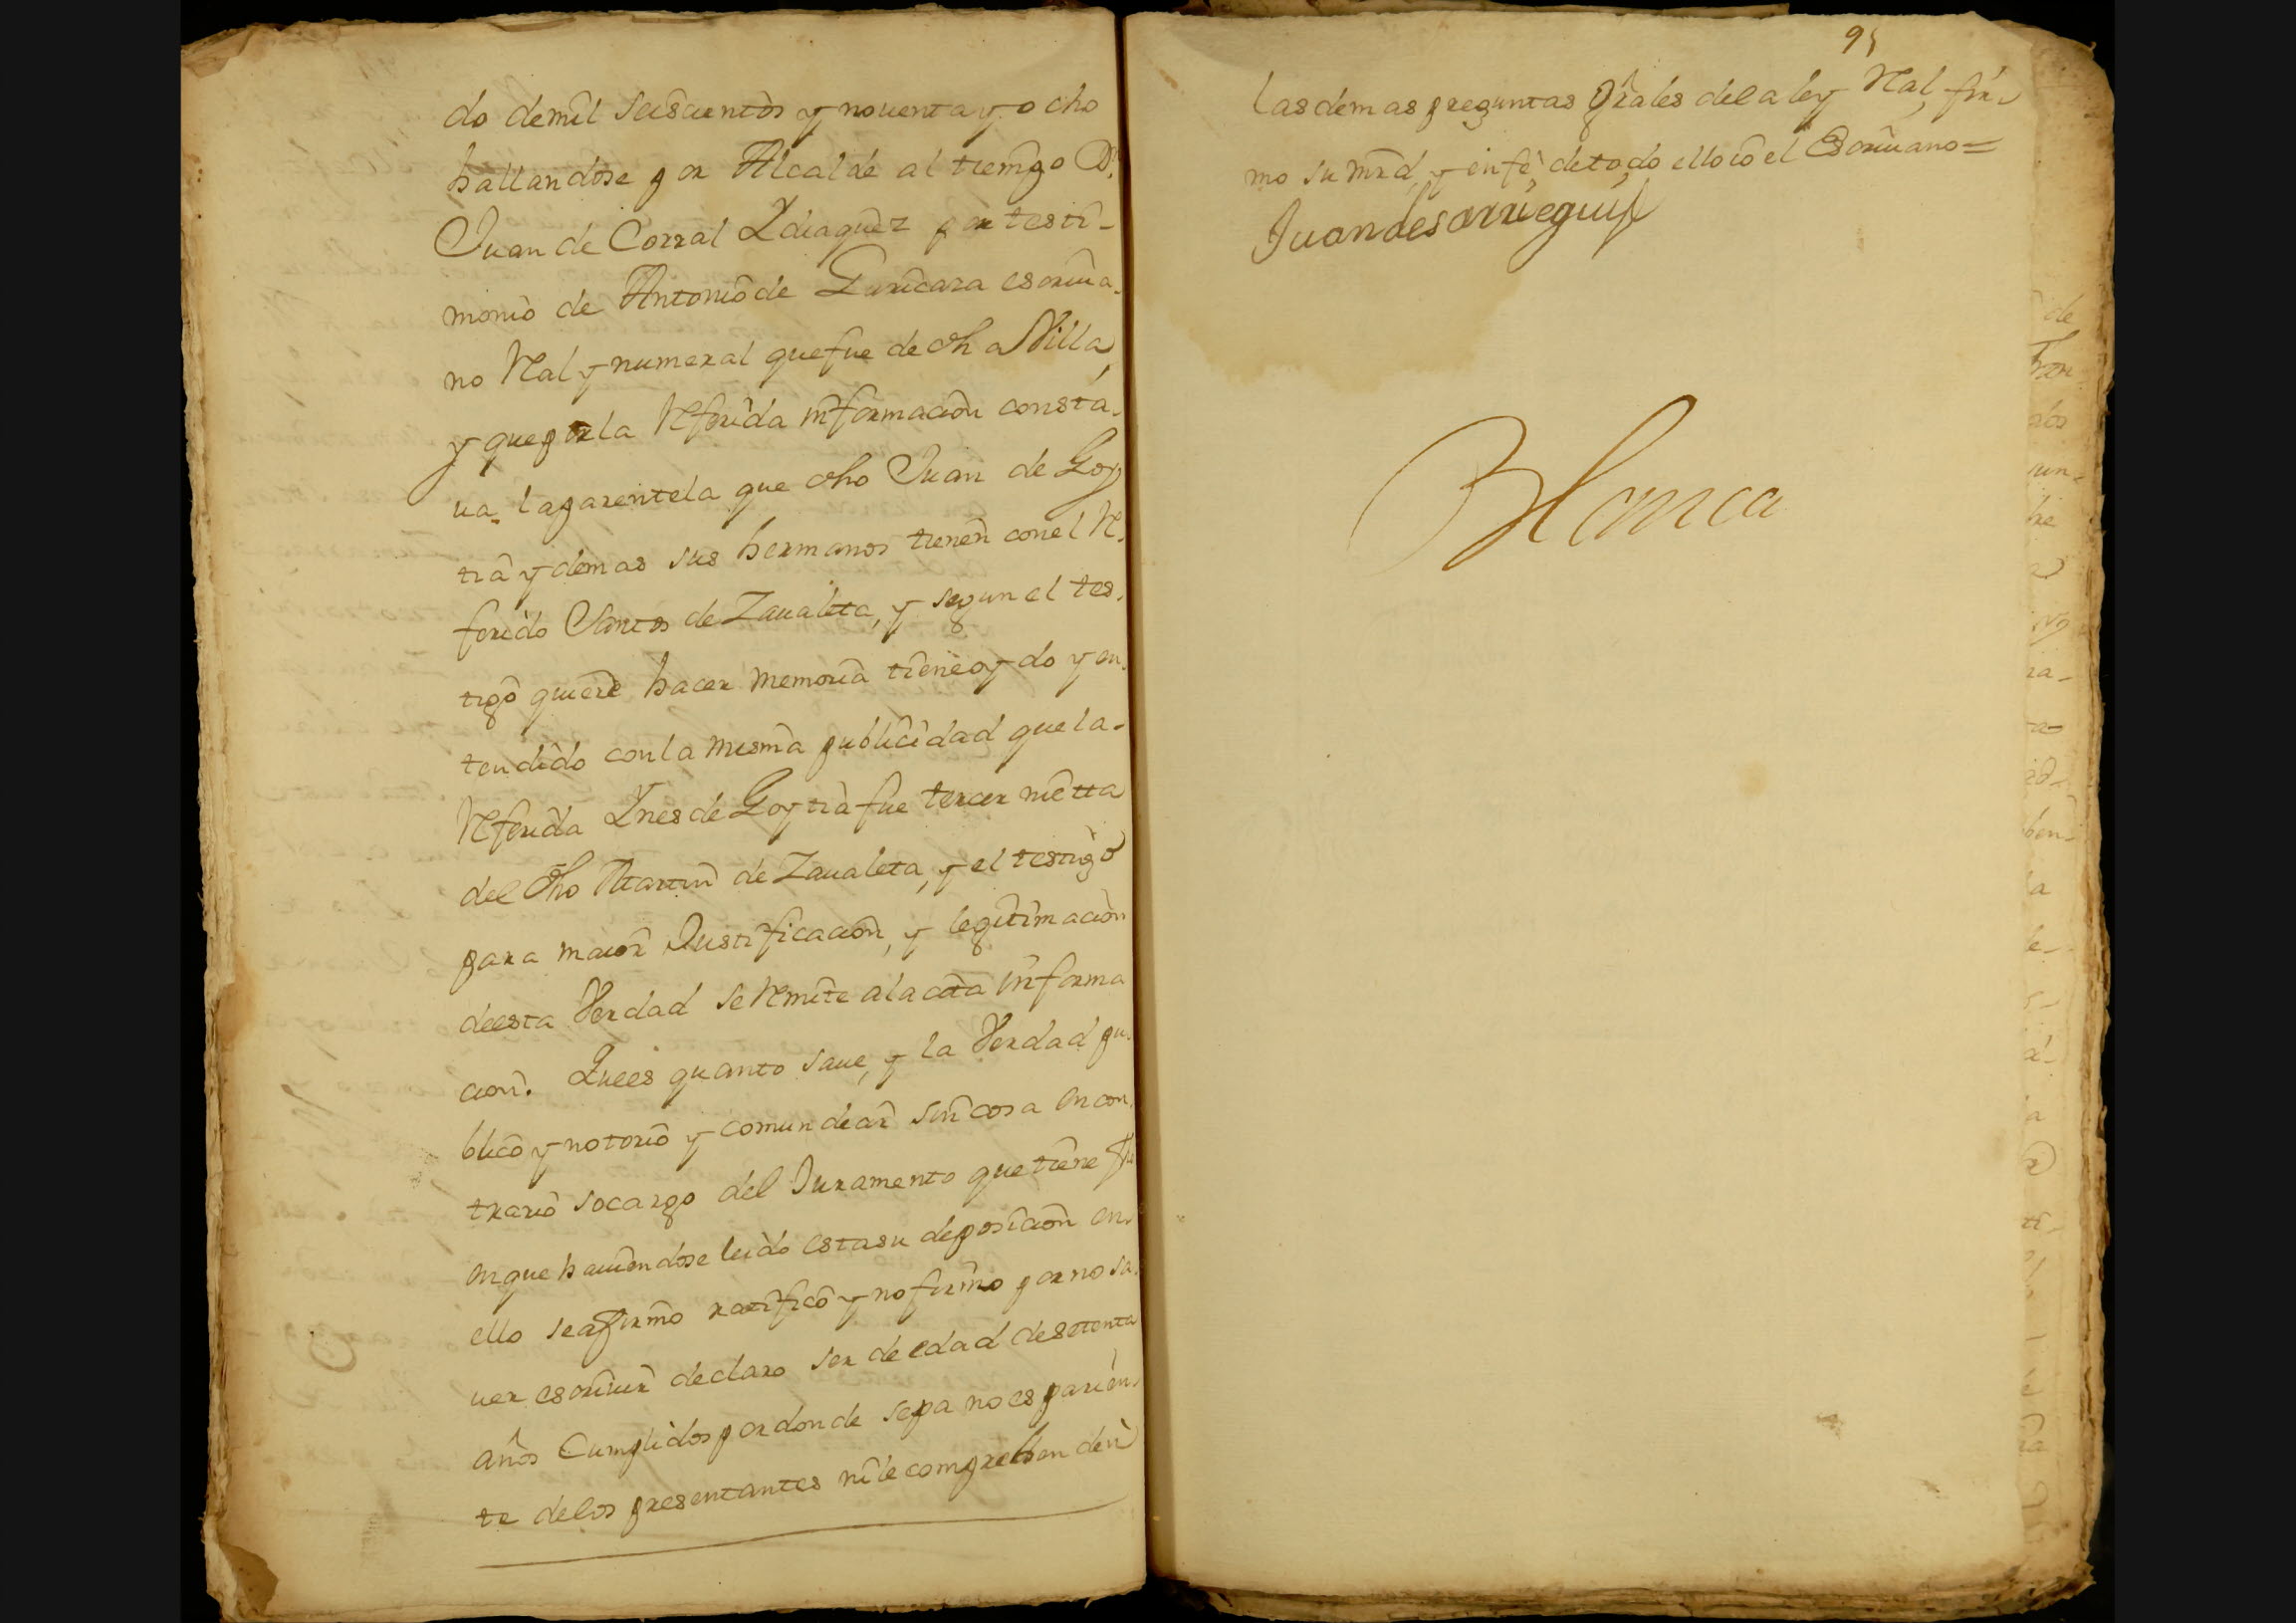 do demil seiscientos y noventa y ocho
hallandose por Alcalde al tiempo D.n
Juan de Corral Ydiaquez por testi-
monio de Antonio de Guricara escriua-
no Ral y numeral que fue de dha Villa,
y que por la referida informacion consta-
ua la parentela que dho Juan de Goy
tia y demas sus hermanos tienen con el re-
ferido Santos de Zaualeta, y segun el tes-
tigo quiere hacer memoria tiene oydo y en-
tendido con la misma publicidad que la-
referida Ynes de Goytia fue tercer nietta
del dho Martin de Zaualeta, y el testigo
para maior Justificacion, y legitimacion
de esta Verdad se remite a la citta informa
cion. Que es quanto saue, y la Verdad pu-
blico y notorio y comun decir sin cosa en con-
trario so cargo del Juramento que tiene fho
en que hauiendose leido esta su deposicion en-
ello se afirmo ratifico y no firmo por no sa-
uer escriuir declaro ser de edad de setenta
años Cumplidos por donde sepa no es parien-
te de los presentantes ni le comprehenden
95
las demas preguntas grales de la ley Ral, fir-
mo su mrd, y en fe de todo ello io el Escriuano=
Juan de Sarriegui
Blanca